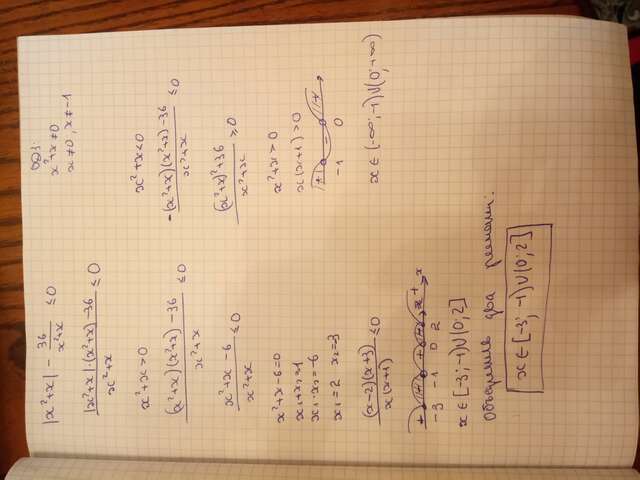 |x²+x| - 36/(x²+x) ≤ 0
ОДЗ:
x²+x≠0
x≠0, x≠-1
(|x²+x|·(x²+x)-36)/(x²+x) ≤ 0
x²+x>0
((x²+x)(x²+x)-36)/(x²+x) ≤ 0
(x²+x-6)/(x²+x) ≤ 0
x²+x-6=0
x₁·x₂=-6
x₁=2 x₂=-3
((x-2)(x+3))/(x(x+1)) ≤ 0
-3 -1 0 2 x
x∈[-3;-1)∪(0;2]
x²+x<0
(-(x²+x)(x²+x)-36)/(x²+x) ≤ 0
((x²+x)²+36)/(x²+x) ≥ 0
x²+x>0
x(x+1)>0
+ - +
-1 0
x∈(-∞;-1)∪(0;+∞)
Объединив два решения:
x∈[-3;-1)∪(0;2]